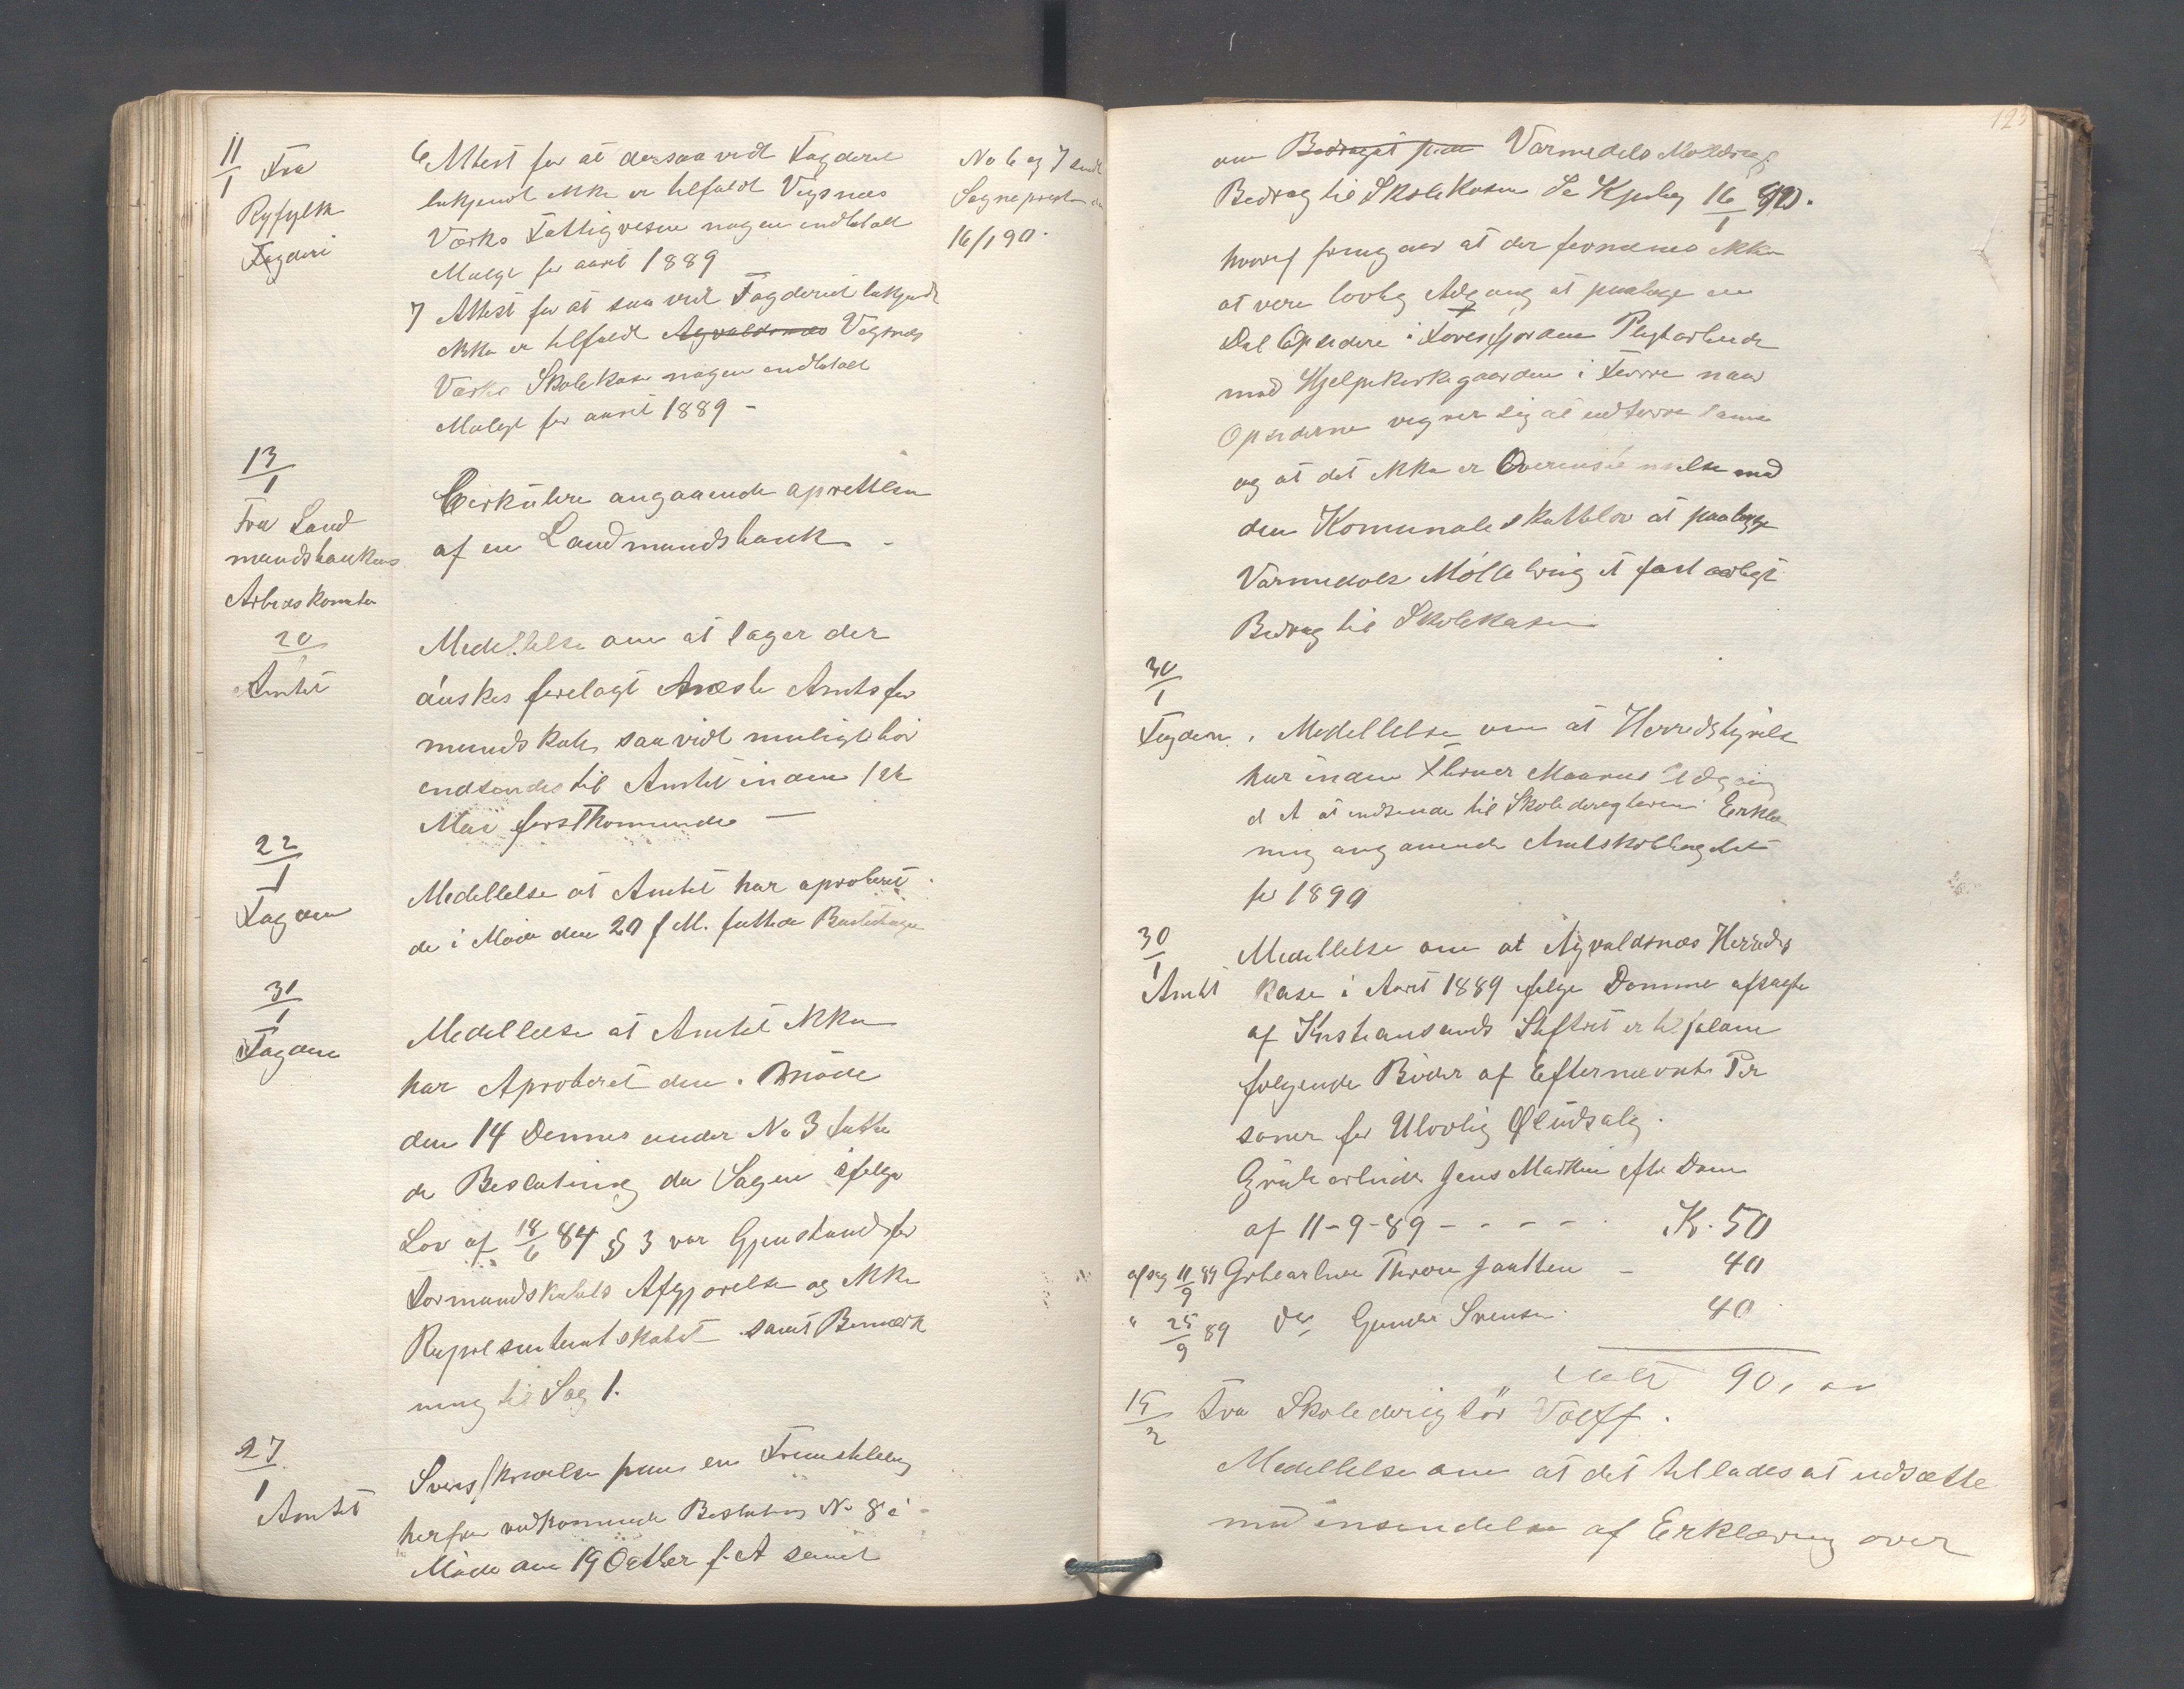 11/1 Fra
Ryfylke
Fogderi
6 Attest for at der saavidt Fogderiet
bekjendt ikke er tilfaldt Vigsnæs
Værks Fattigvesen nogen indbetalt
Mulgt for aaret 1889
No 6 og 7 sendt
Sognepresten
16/1 90.
7 Attest for at saa vidt Fogderiet bekjendt
ikke er tilfaldt Agvaldsnæs Vigsnæs
Værks Skolekase nogen indbetalt
Mulgt for aaret 1889 -
13/1
Fra Land
mandsbankens
Arbeidskomite
Cirkulere angaaende oprettelse
af en Landmandsbank -
20/1
Amtet
Medellelse om at sager der
ønskes forelagt Næste Amtsfor
mandskab, saa vidt muligt bør
indsendes til Amtet inden 1ste
Mai førstkommende -
22/1
Fogden
Medellelse at Amtet har aproberet
de i Møde den 20 f M. fattede Beslutninger
31/1
Fogden
Medellelse at Amtet ikke
har Aproberet den i Møde
den 14 Dennes under No 3 fatte
de Beslutning da Sagen ifølge
Lov af 18/6 84 § 3 var Gjenstand for
Formandskabets Afgjørelse og ikke
Representantskabet samt Bemærk
ning til Sag 1.
27/1
Amtet
Svarskrivelse paa en Fremstilling
herfra vedkommende Beslutning No 8 i
Møde den 19 Octber f. A samt
123
om Bedraget fra Varmedals Møllebrug
Bedrag til Skolekasen Se Kpbog 16/1 90.
hvoraf fremgaar at der formenes ikke
at være lovlig Adgang at paalegge en
Del Opsidere i Førresfjorden Pligtarbeide
med Hjelpekirkegaarden i Førre naar
Opsiderne vegrer sig at udføre samme
og at det ikke er Overensstemmelse med
den Komunale skattelov at paalegge
Varmedals Møllebrug et fast aarligt
Bedrag til Skolekasen
30/1
Fogden. Medellelse om at Herredstyrelse
har inden Februar Maaneds Udgang
d A at indsende til Skoledirigtøren Erklæ
ring angaaende Amtskolebugdet
for 1890
30/1
Amtet
Medellelse om at Agvaldsnæs Herreds
kase i Aaret 1889 ifølge Domme afsagte
af Kristiansands Stiftret er tilfalden
følgende Bøder af Efternævnte Per
soner for Ulovlig Øludsalg.
Grubearbeider Jens Martin efter Dom
af 11-9-89 - - - - - Kr. 50
afsag 11/9 89 Grbearbeider Thron Jantten - 40
" 25/9 89 do Gunder Svensen 40
90,
15/2 Fra Skoledirigtør Volff.
Medellelse om at det tillades at udsætte
med insendelse af Erklæring over